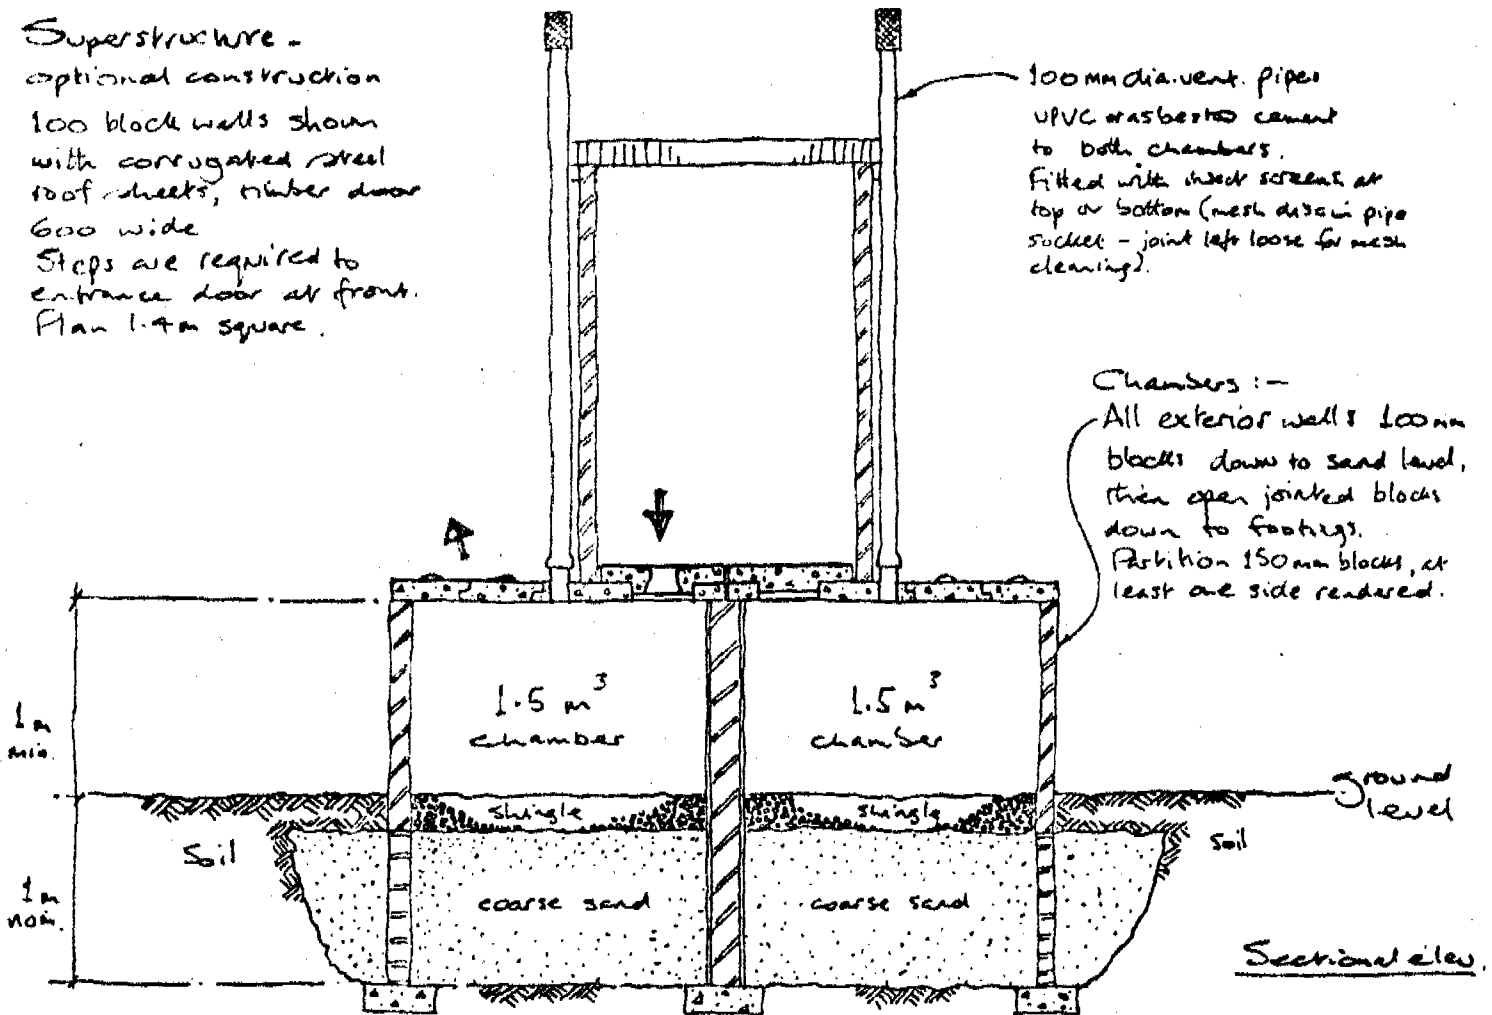 Superstructure -
optional construction
100 block walls shown
with corrugated steel
roof sheets, timber door
600 wide
Steps are required to
entrance door at front.
Plan 1.4m square.
100mm dia. vent. pipes
UPVC or asbestos cement
to both chambers.
Fitted with insect screens at
top or bottom (mesh disc in pipe
socket - joint left loose for mesh
cleaning).
Chambers :-
All exterior walls 100mm
blocks down to sand level,
then open jointed blocks
down to footings.
Partition 150mm blocks, at
least one side rendered.
1.5 m³
chamber
1.5 m³
chamber
1m
min.
ground
level
shingle
shingle
Soil
Soil
1m
nom.
coarse sand
coarse sand
Sectional elev.